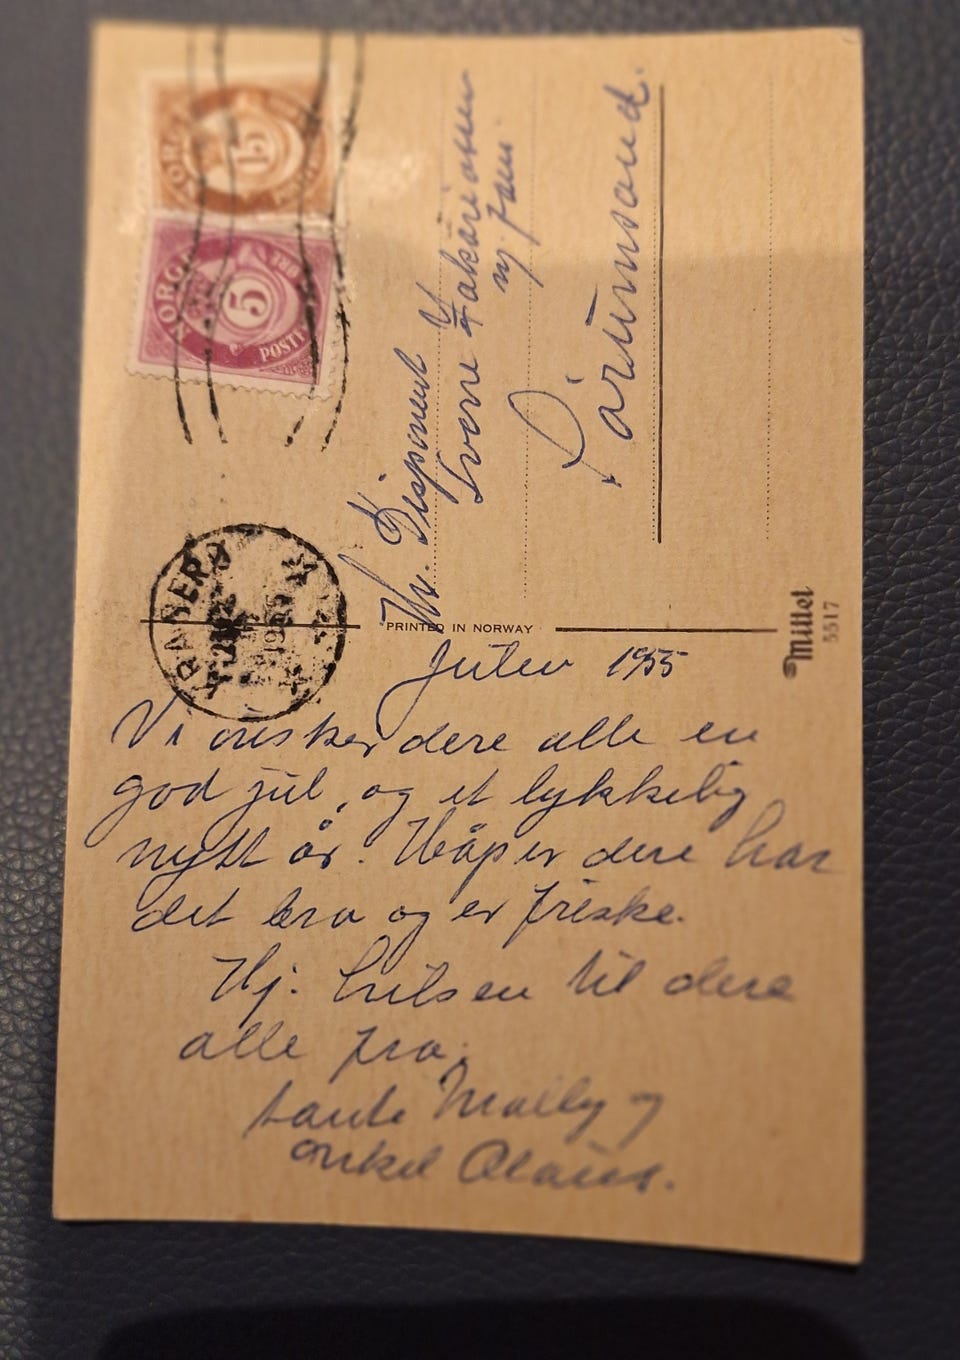 NORGE
15
NORGE
5
POSTE
KRAGERØ
1955
Hr. Disponent
Sverre Zakariassen
m/ fam
Larimsand.
PRINTED IN NORWAY
Mittet
5517
Julen 1955
Vi ønsker dere alle en
god jul, og et lykkelig
nytt år. Håper dere har
det bra og er friske.
Hj. hilsen til dere
alle fra.
tante Mally og
onkel Olaus.